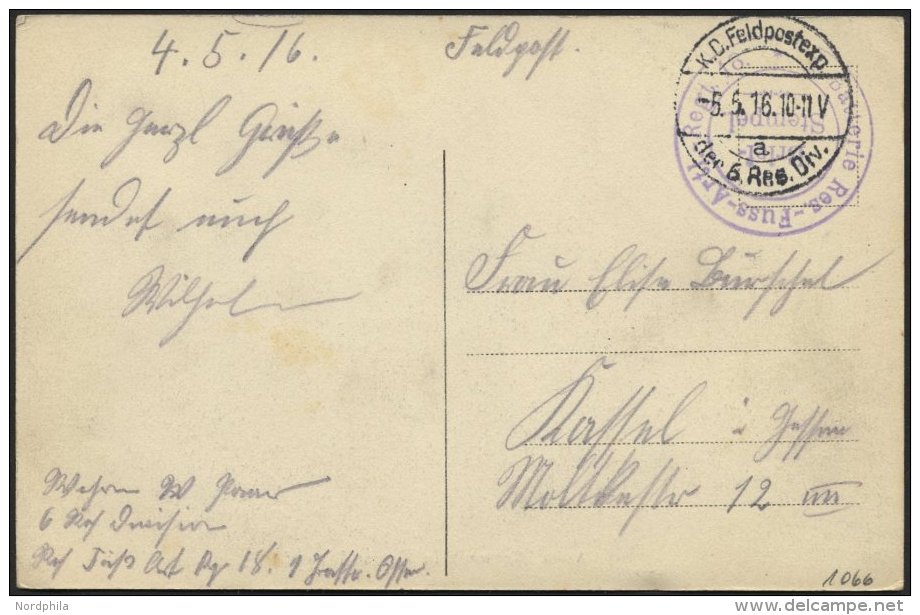 4.5.16.
Feldpost.
K.D. Feldpostexp.
-5.5.16.10-11V
a
der 6. Res. Div.
batterie Res.-Fuss-Art. Regt.
Stempel
Die herzl Grüße
sendet euch
Wilhelm
Frau Elise Burschel
Kassel i Hessen
Moltkestr 12 III
W
6 Res Division
Res Fuß Art Rg 18. 1
1066
Nordphila
delcampe.net